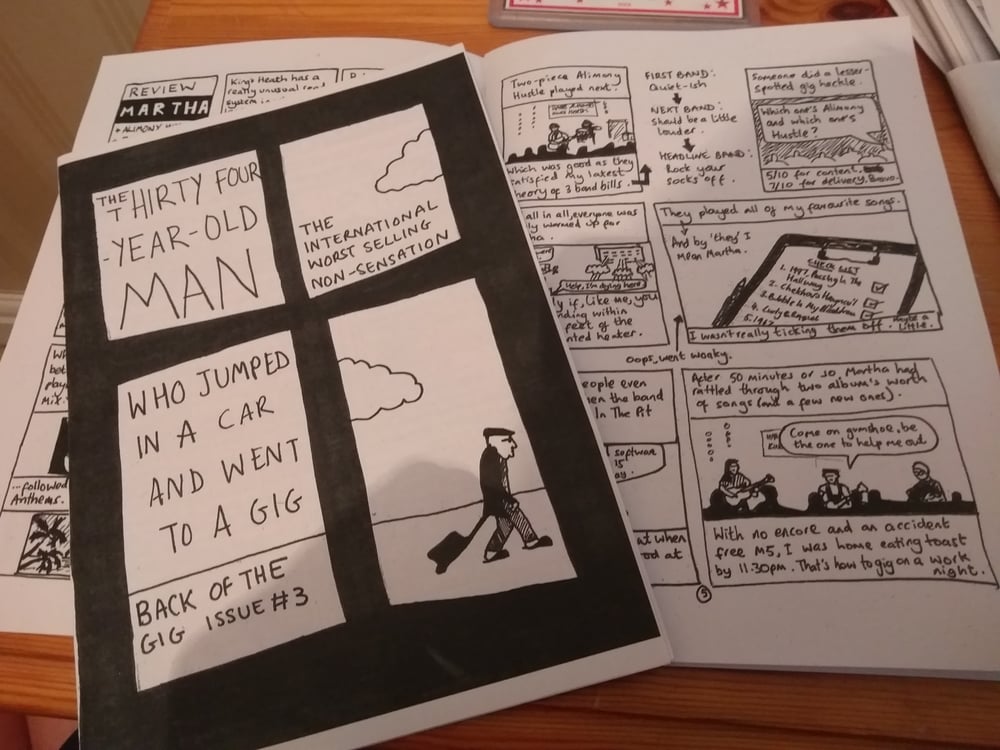 THE THIRTY FOUR
-YEAR-OLD
MAN
THE
INTERNATIONAL
WORST SELLING
NON-SENSATION
WHO JUMPED
IN A CAR
AND WENT
TO A GIG
BACK OF THE
GIG ISSUE #3
REVIEW
MARTHA
+ ALIMONY
King's Heath has a
really unusual road
system
...followed
Anthems.
Two-piece Alimony
Hustle played next.
Which was good as they
satisfied my latest
theory of 3 band bills.
FIRST BAND:
Quiet-ish
NEXT BAND:
Should be a little
louder.
HEADLINE BAND:
Rock your
socks off.
Someone did a lesser-
spotted gig heckle.
Which one's Alimony
and which one's
Hustle?
5/10 for content.
7/10 for delivery. Bravo.
all in all, everyone was
ly warmed up for
Help, I'm dying here
ly if, like me, you
nding within
feet of the
heater.
They played all of my favourite songs.
And by 'they' I
mean Martha.
CHECK LIST
1. 1997, Passing In The
Hallway
2. Chekhov's Hangnail
3. Bubble In My Bloodstream
4.
5. 1967
I wasn't really ticking them off. Maybe a
little.
Oops, went wonky.
eople even
en the band
In The Pit
software
15
ay.
at when
od at
After 50 minutes or so, Martha had
rattled through two album's worth
of songs (and a few new ones).
Come on gumshoe, be
the one to help me out
With no encore and an accident
free M5, I was home eating toast
by 11.30pm. That's how to gig on a work
night.
5